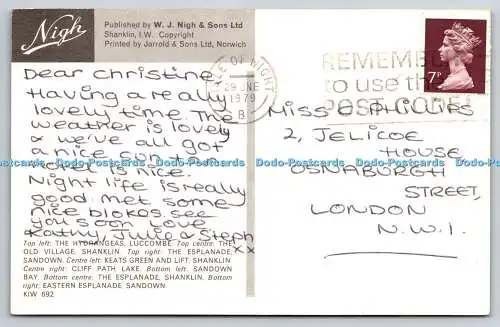 Nigh
Published by W. J. Nigh & Sons Ltd
Shanklin, I.W. Copyright
Printed by Jarrold & Sons Ltd, Norwich
Dear Christine,
Having a really
lovely time. The
weather is lovely
& we've all got
a nice
hotel is nice.
Night life is really
good. met some
nice blokes. see
you soon Love
Kathy, Julie & Steph
xx
Top left: THE HYDRANGEAS, LUCCOMBE. Top centre: THE
OLD VILLAGE, SHANKLIN. Top right: THE ESPLANADE,
SANDOWN. Centre left: KEATS GREEN AND LIFT, SHANKLIN
Centre right: CLIFF PATH LAKE. Bottom left: SANDOWN
BAY. Bottom centre: THE ESPLANADE, SHANKLIN. Bottom
right: EASTERN ESPLANADE, SANDOWN.
KIW 692
ISLE OF WIGHT
29 JNE
1979
B
REMEMBER
to use the
POSTCODE
7P
MISS C PHILLIPS
2, JELICOE
HOUSE
OSNABURGH
STREET,
LONDON
N.W.1.
Dodo-Postcards Dodo-Postcards Dodo-Postcards Dodo-Postcards Dodo-Postcards